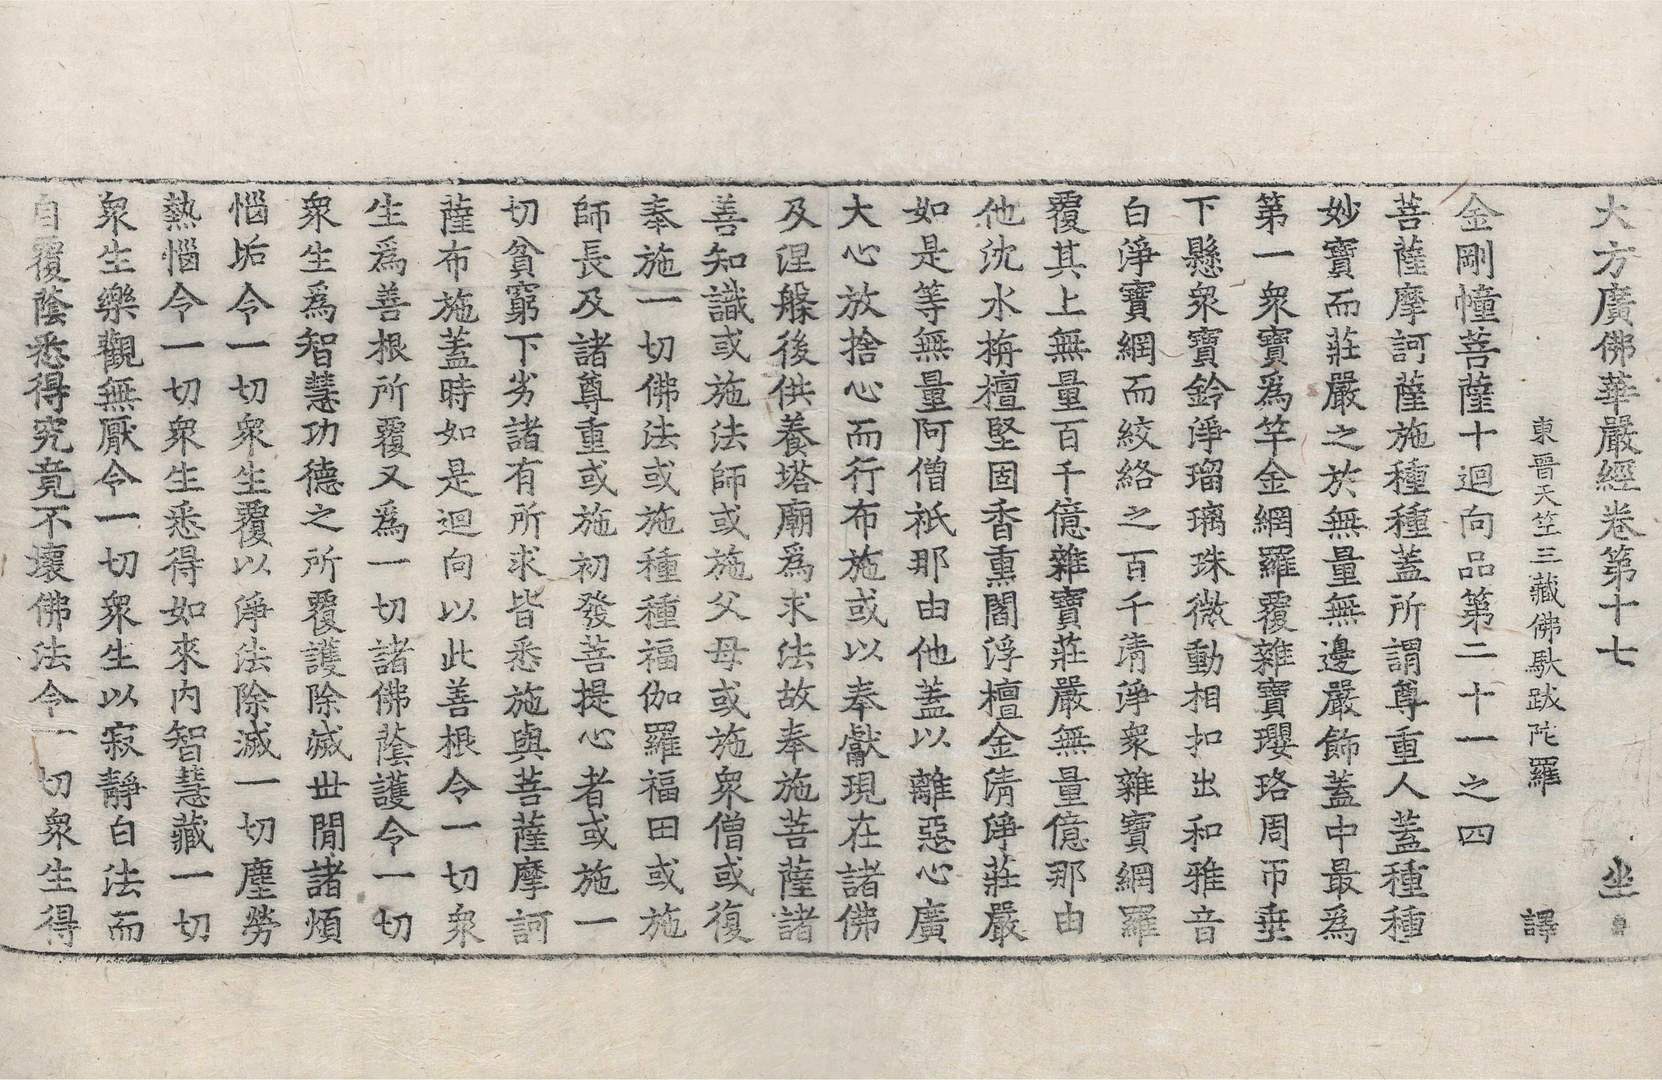 大方廣佛華嚴經卷第十七 坐
東晉天竺三藏佛馱跋陀羅 譯
金剛幢菩薩十迴向品第二十一之四
菩薩摩訶薩施種種蓋所謂尊重人蓋種種
妙寶而莊嚴之於無量無邊嚴飾蓋中最為
第一衆寶爲竿金網羅覆雜寶瓔珞周帀垂
下懸衆寶鈴淨瑠璃珠微動相扣出和雅音
白淨寶網而絞絡之百千清淨衆雜寶網羅
覆其上無量百千億雜寶莊嚴無量億那由
他沈水栴檀堅固香熏閻浮檀金清淨莊嚴
如是等無量阿僧祇那由他蓋以離惡心廣
大心放捨心而行布施或以奉獻現在諸佛
及涅槃後供養塔廟爲求法故奉施菩薩諸
善知識或施法師或施父母或施衆僧或復
奉施一切佛法或施種種福伽羅福田或施
師長及諸尊重或施初發菩提心者或施一
切貧窮下劣諸有所求皆悉施與菩薩摩訶
薩布施蓋時如是迴向以此善根令一切衆
生爲善根所覆又為一切諸佛蔭護令一切
衆生爲智慧功德之所覆護除滅世間諸煩
惱垢令一切衆生覆以淨法除滅一切塵勞
熱惱令一切衆生悉得如來内智慧藏一切
衆生樂觀無厭令一切衆生以寂靜白法而
自覆蔭悉得究竟不壞佛法令一切衆生得